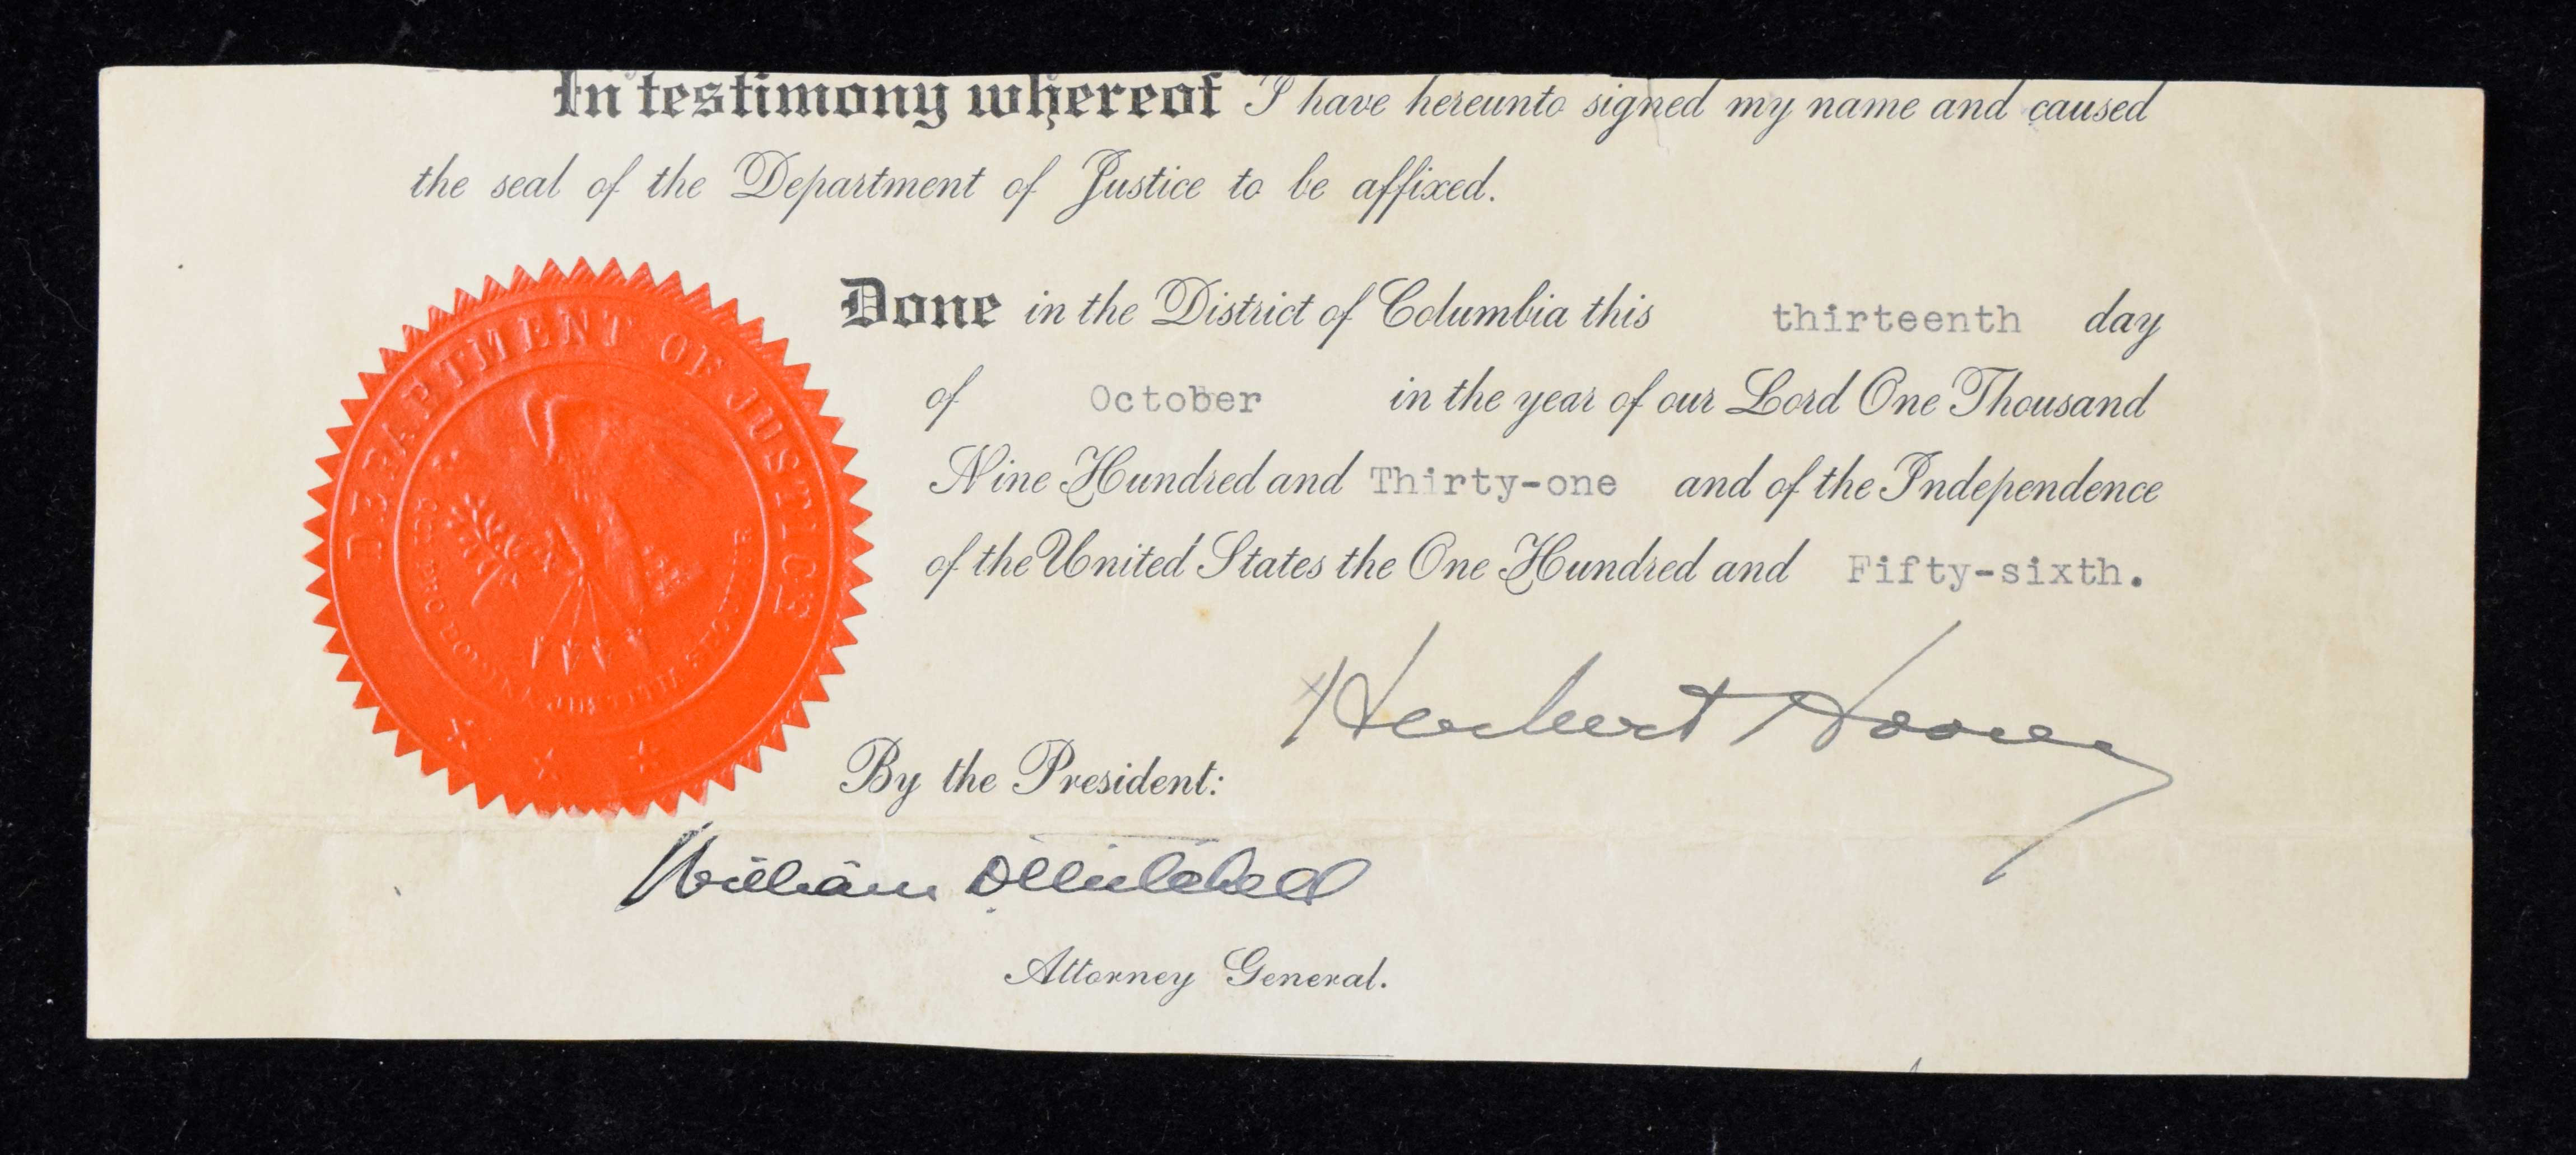 In testimony whereof I have hereunto signed my name and caused
the seal of the Department of Justice to be affixed.
DEPARTMENT OF JUSTICE
QUI PRO DOMINA JUSTITIA SEQUITUR
Done in the District of Columbia this thirteenth day
of October in the year of our Lord One Thousand
Nine Hundred and Thirty-one and of the Independence
of the United States the One Hundred and Fifty-sixth.
Herbert Hoover
By the President:
William D Mitchell
Attorney General.